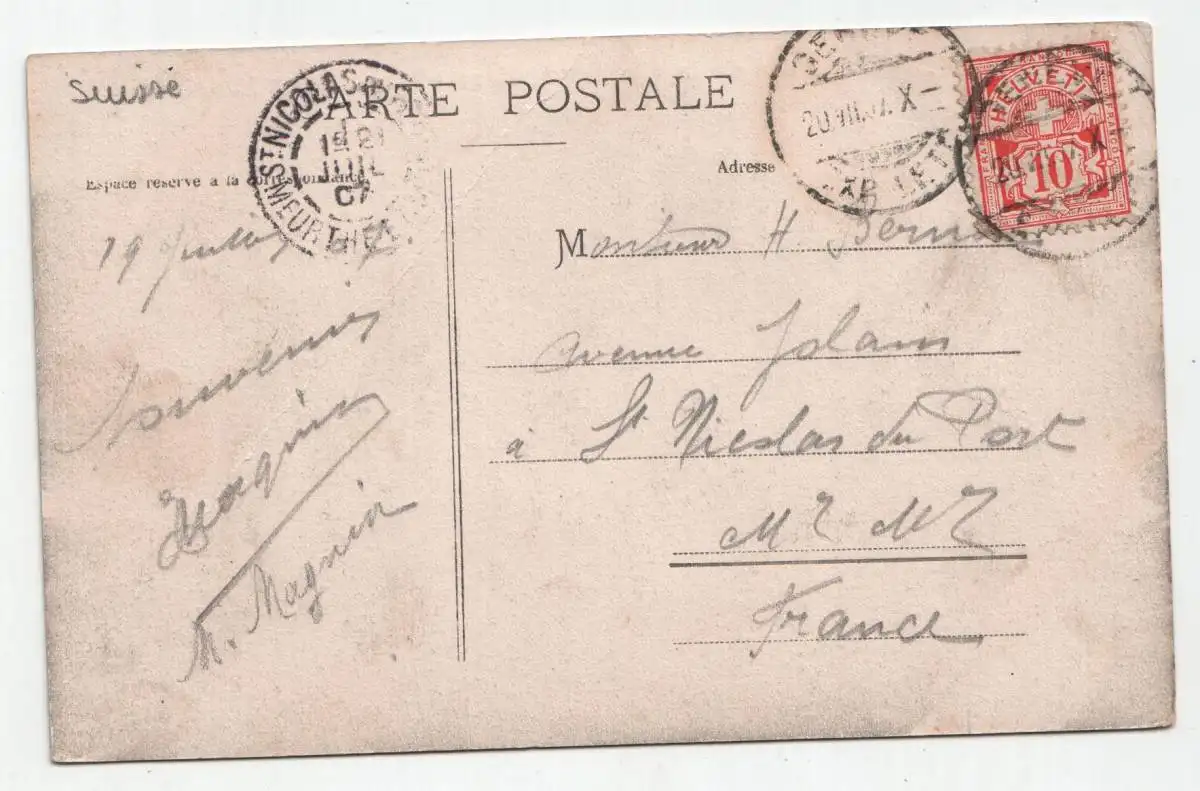 Suisse
CARTE POSTALE
ST NICOLAS
21
JUIL
07
MEURTHE
20.VII.07. X
HELVETIA
10
20.VII.07. X
Espace réservé à la correspondance
Adresse
19 Juillet 07
Souvenir
M. Magnin
Monsieur H.
avenue Jolain
à St Nicolas du Port
M & M
France